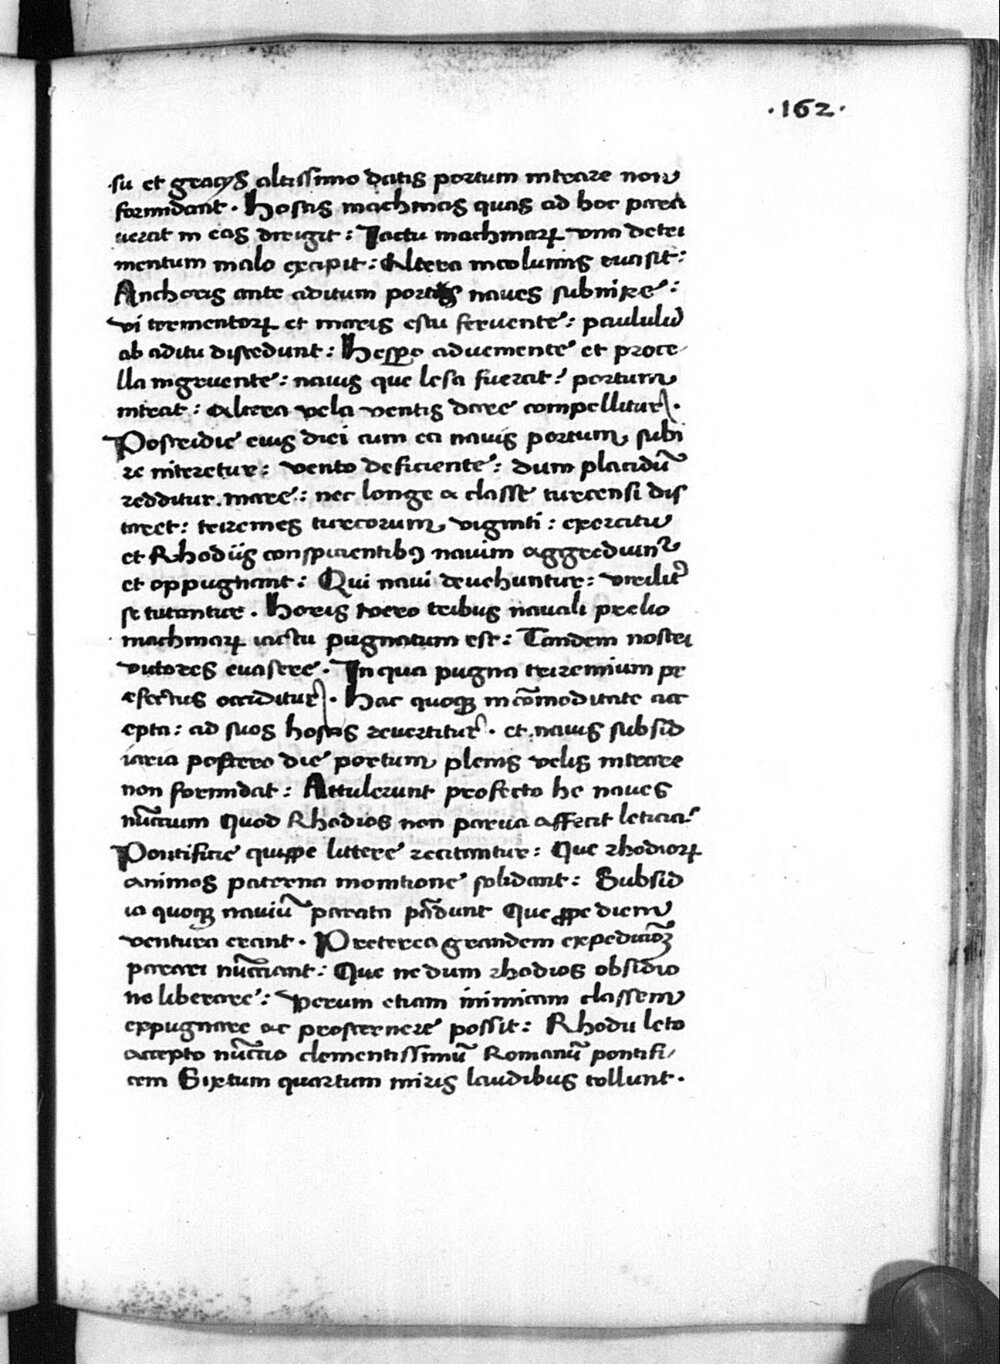 ·162·
su et gracijs altissimo datis portum intrare non
formidant · Hostis machinas quas ad hoc para
uerat in eas dirigit : Iactu machinarꝝ vna detri
mentum malo excipit : Altera incolumis euasit :
Anchoris ante aditum portus naues subnixe :
vi tormentorꝝ et maris estu feruente : paululū
ab aditu discedunt : Hespero adueniente et proce/
lla ingruente : nauis que lesa fuerat : portum
intrat : Altera vela ventis dare compellitur ·
Postridie eius diei cum ea nauis portum subi
re niteretur : vento deficiente : dum placidū
redditur mare : nec longe a classe turcensi dis
taret : triremes turcorum viginti : exercitu
et Rhodijs conspicientibꝯ nauim aggrediunt᷑
et oppugnant : Qui naui deuehuntur : virilit᷑
se tutantur · Horis vero tribus nauali prelio
machinarꝝ iactu pugnatum est : Tandem nostri
victores euasere · In qua pugna triremium pr
efectus occiditur · Hac quoqꝫ incōmoditate acc
epta : ad suos hostis reuertitur · et nauis subsid
iaria postero die portum plenis velis intrare
non formidat : Attulerunt profecto he naues
nūctium Quod Rhodios non parua affecit leticia :
Pontificie quippe littere recitantur : Que rhodiorꝝ
animos paterna monitione solidant : Subsid
ia quoqꝫ nauiū parata pādunt Que ꝓpe diem
ventura erant · Preterea grandem expedicioꝫ
parari nūctiant : Que ne dum rhodios obsidio
ne liberare : verum etiam inimicam classem
expugnare ac prosternere possit : Rhodij leto
accepto nūctio clementissimū Romanū pontifi/
cem Sixtum quartum miris laudibus tollunt ·